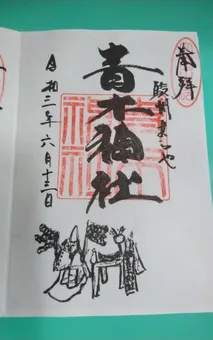 奉拝
駿州まこや
青木神社
令和三年六月十三日